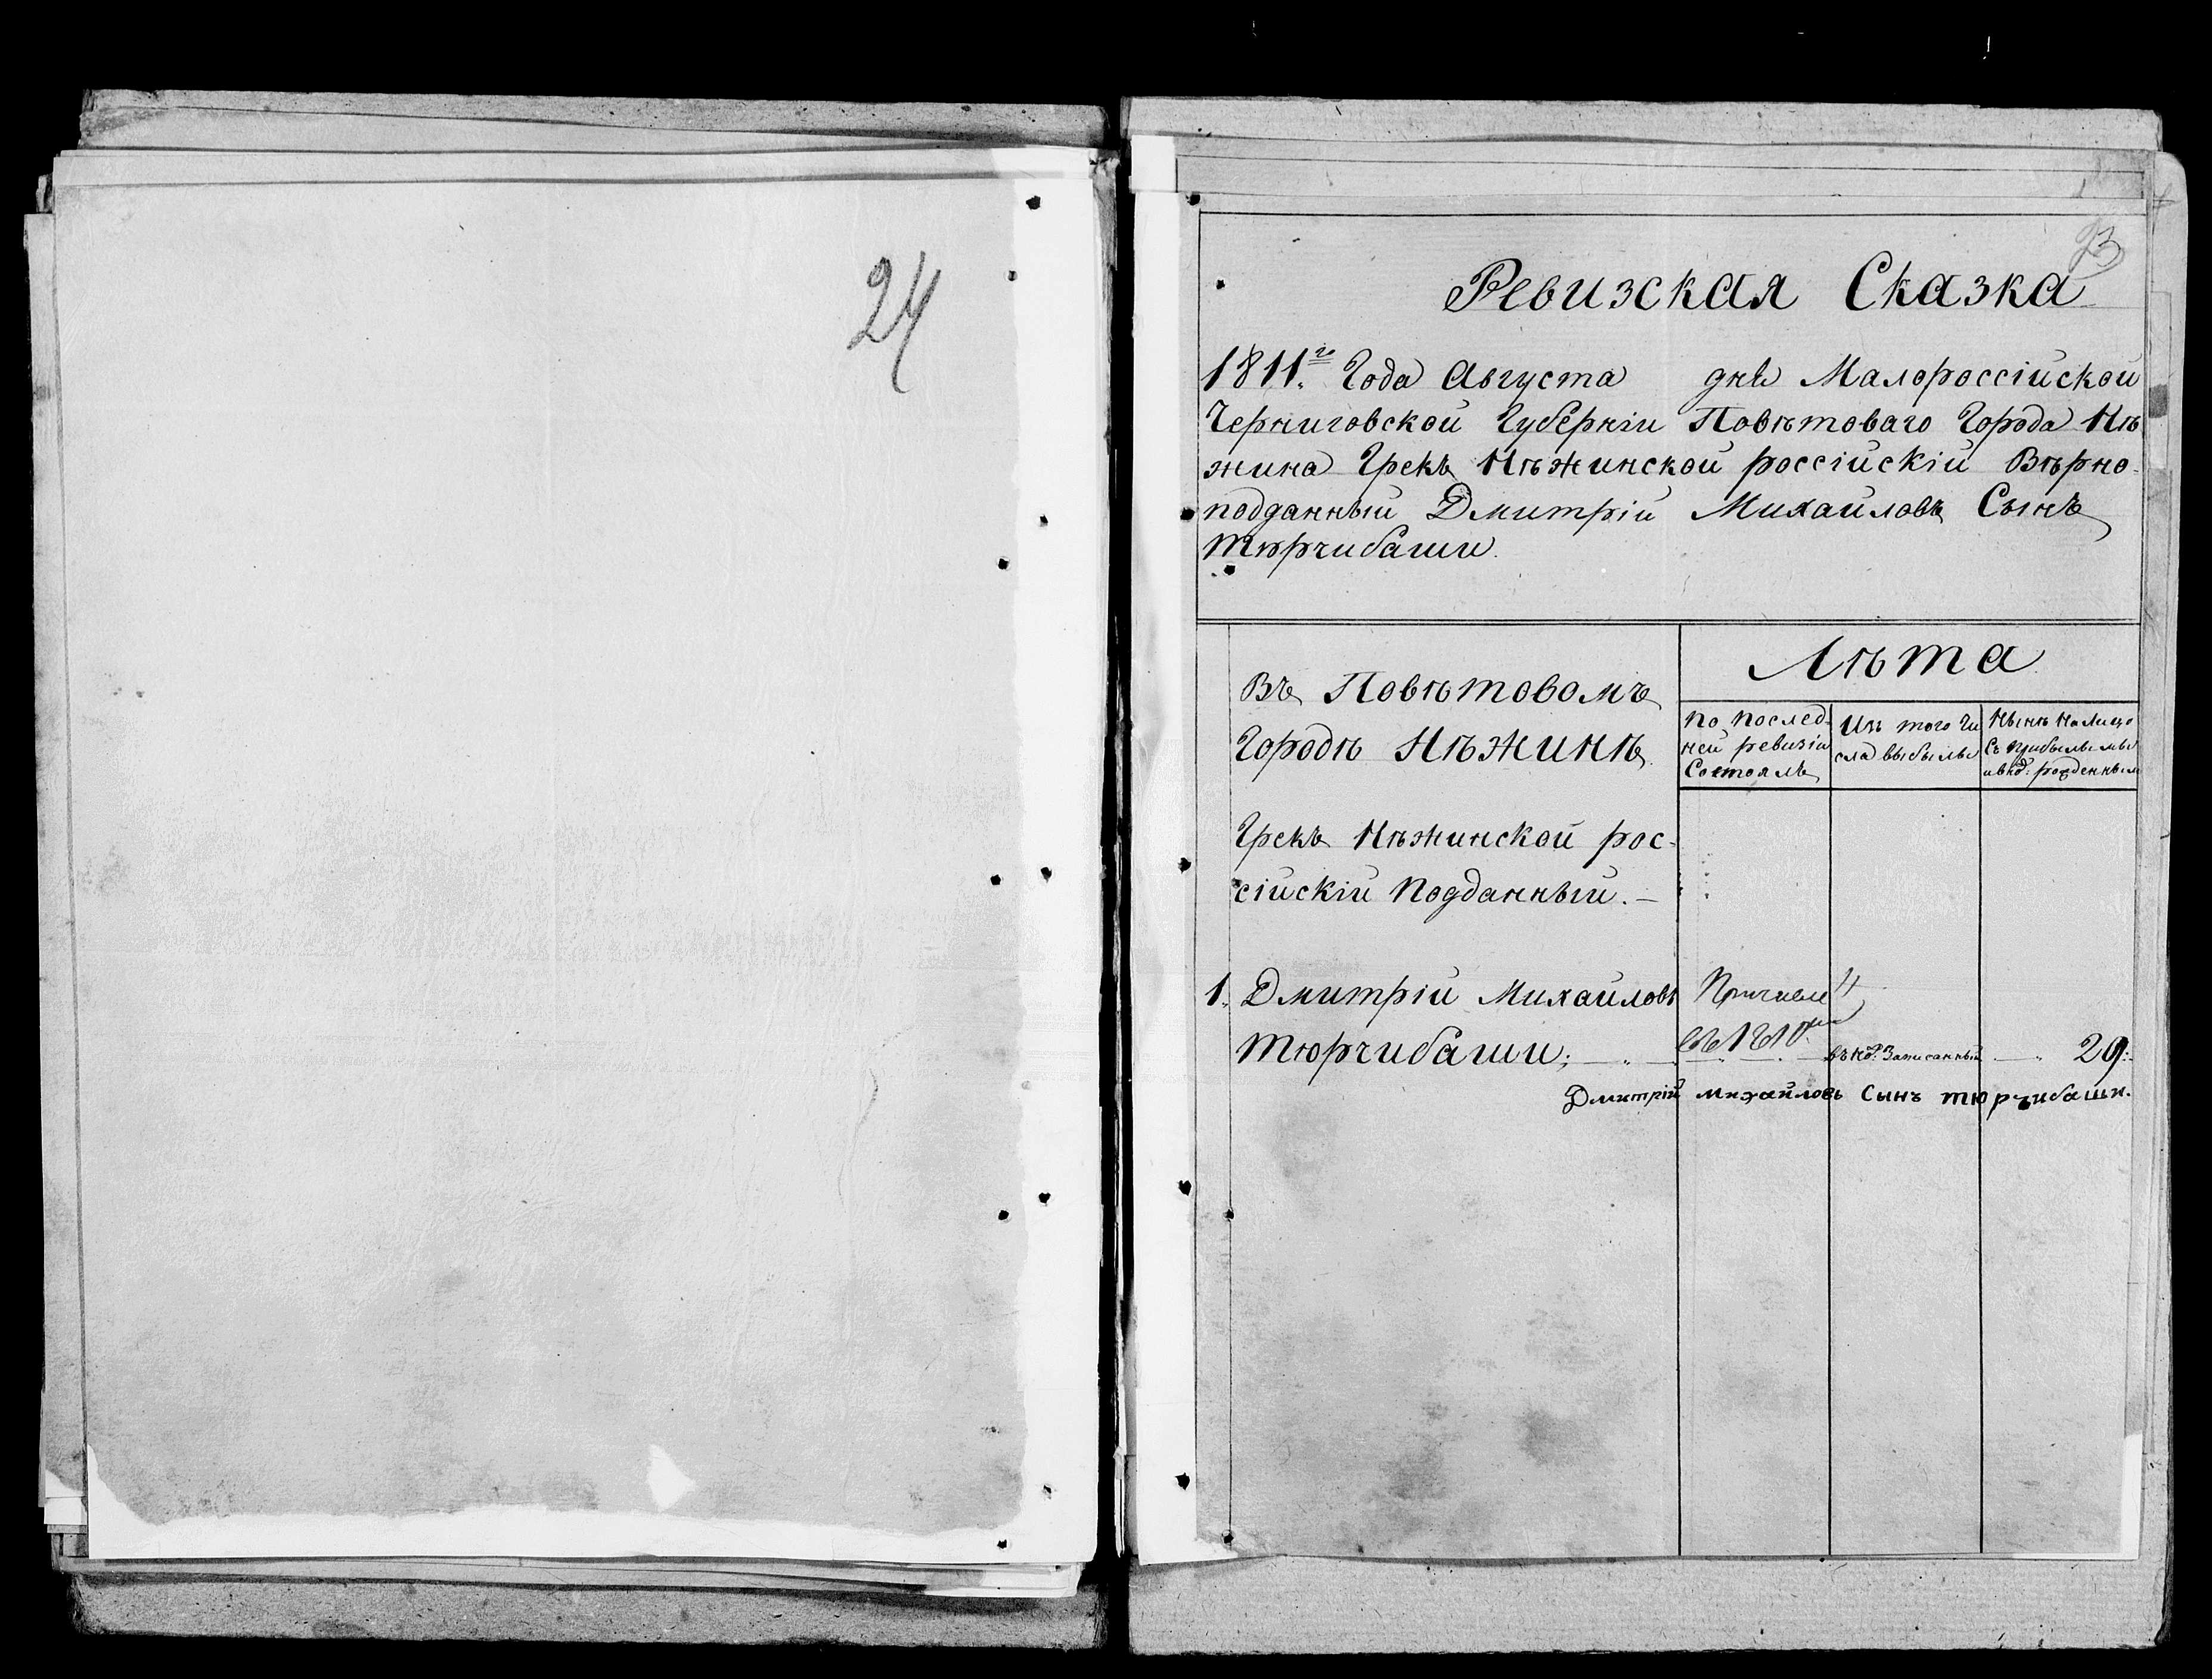 24
23
Ревизская Сказка
1811.го Года Августа дня Малороссійской
Черниговской Губерніи Повѣтоваго Города Нѣ
жина Грекъ Нѣжинской россійскій Вѣрно-
подданный Дмитрій Михайловъ Сынъ
Тюрчибаши.
Лѣта
Въ Повѣтовомъ
Городѣ Нѣжинѣ
по послед-
ней ревизіи
Состоялъ
Изъ того Чи
сла выбылы
Нынѣ на лицо
Съ прибылыми
Грекъ Нѣжинской рос-
сійскій Подданный.—
1. Дмитрій Михайловъ
Тюрчибаши;
въ 1810м
Записанный
29:
Дмитрій михайловъ Сынъ тюрчибаши.